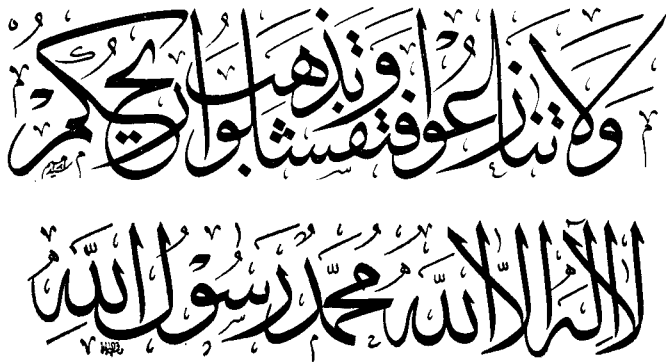 ولا تنازعوا فتفشلوا وتذهب ريحكم
لا إله إلا الله محمد رسول الله